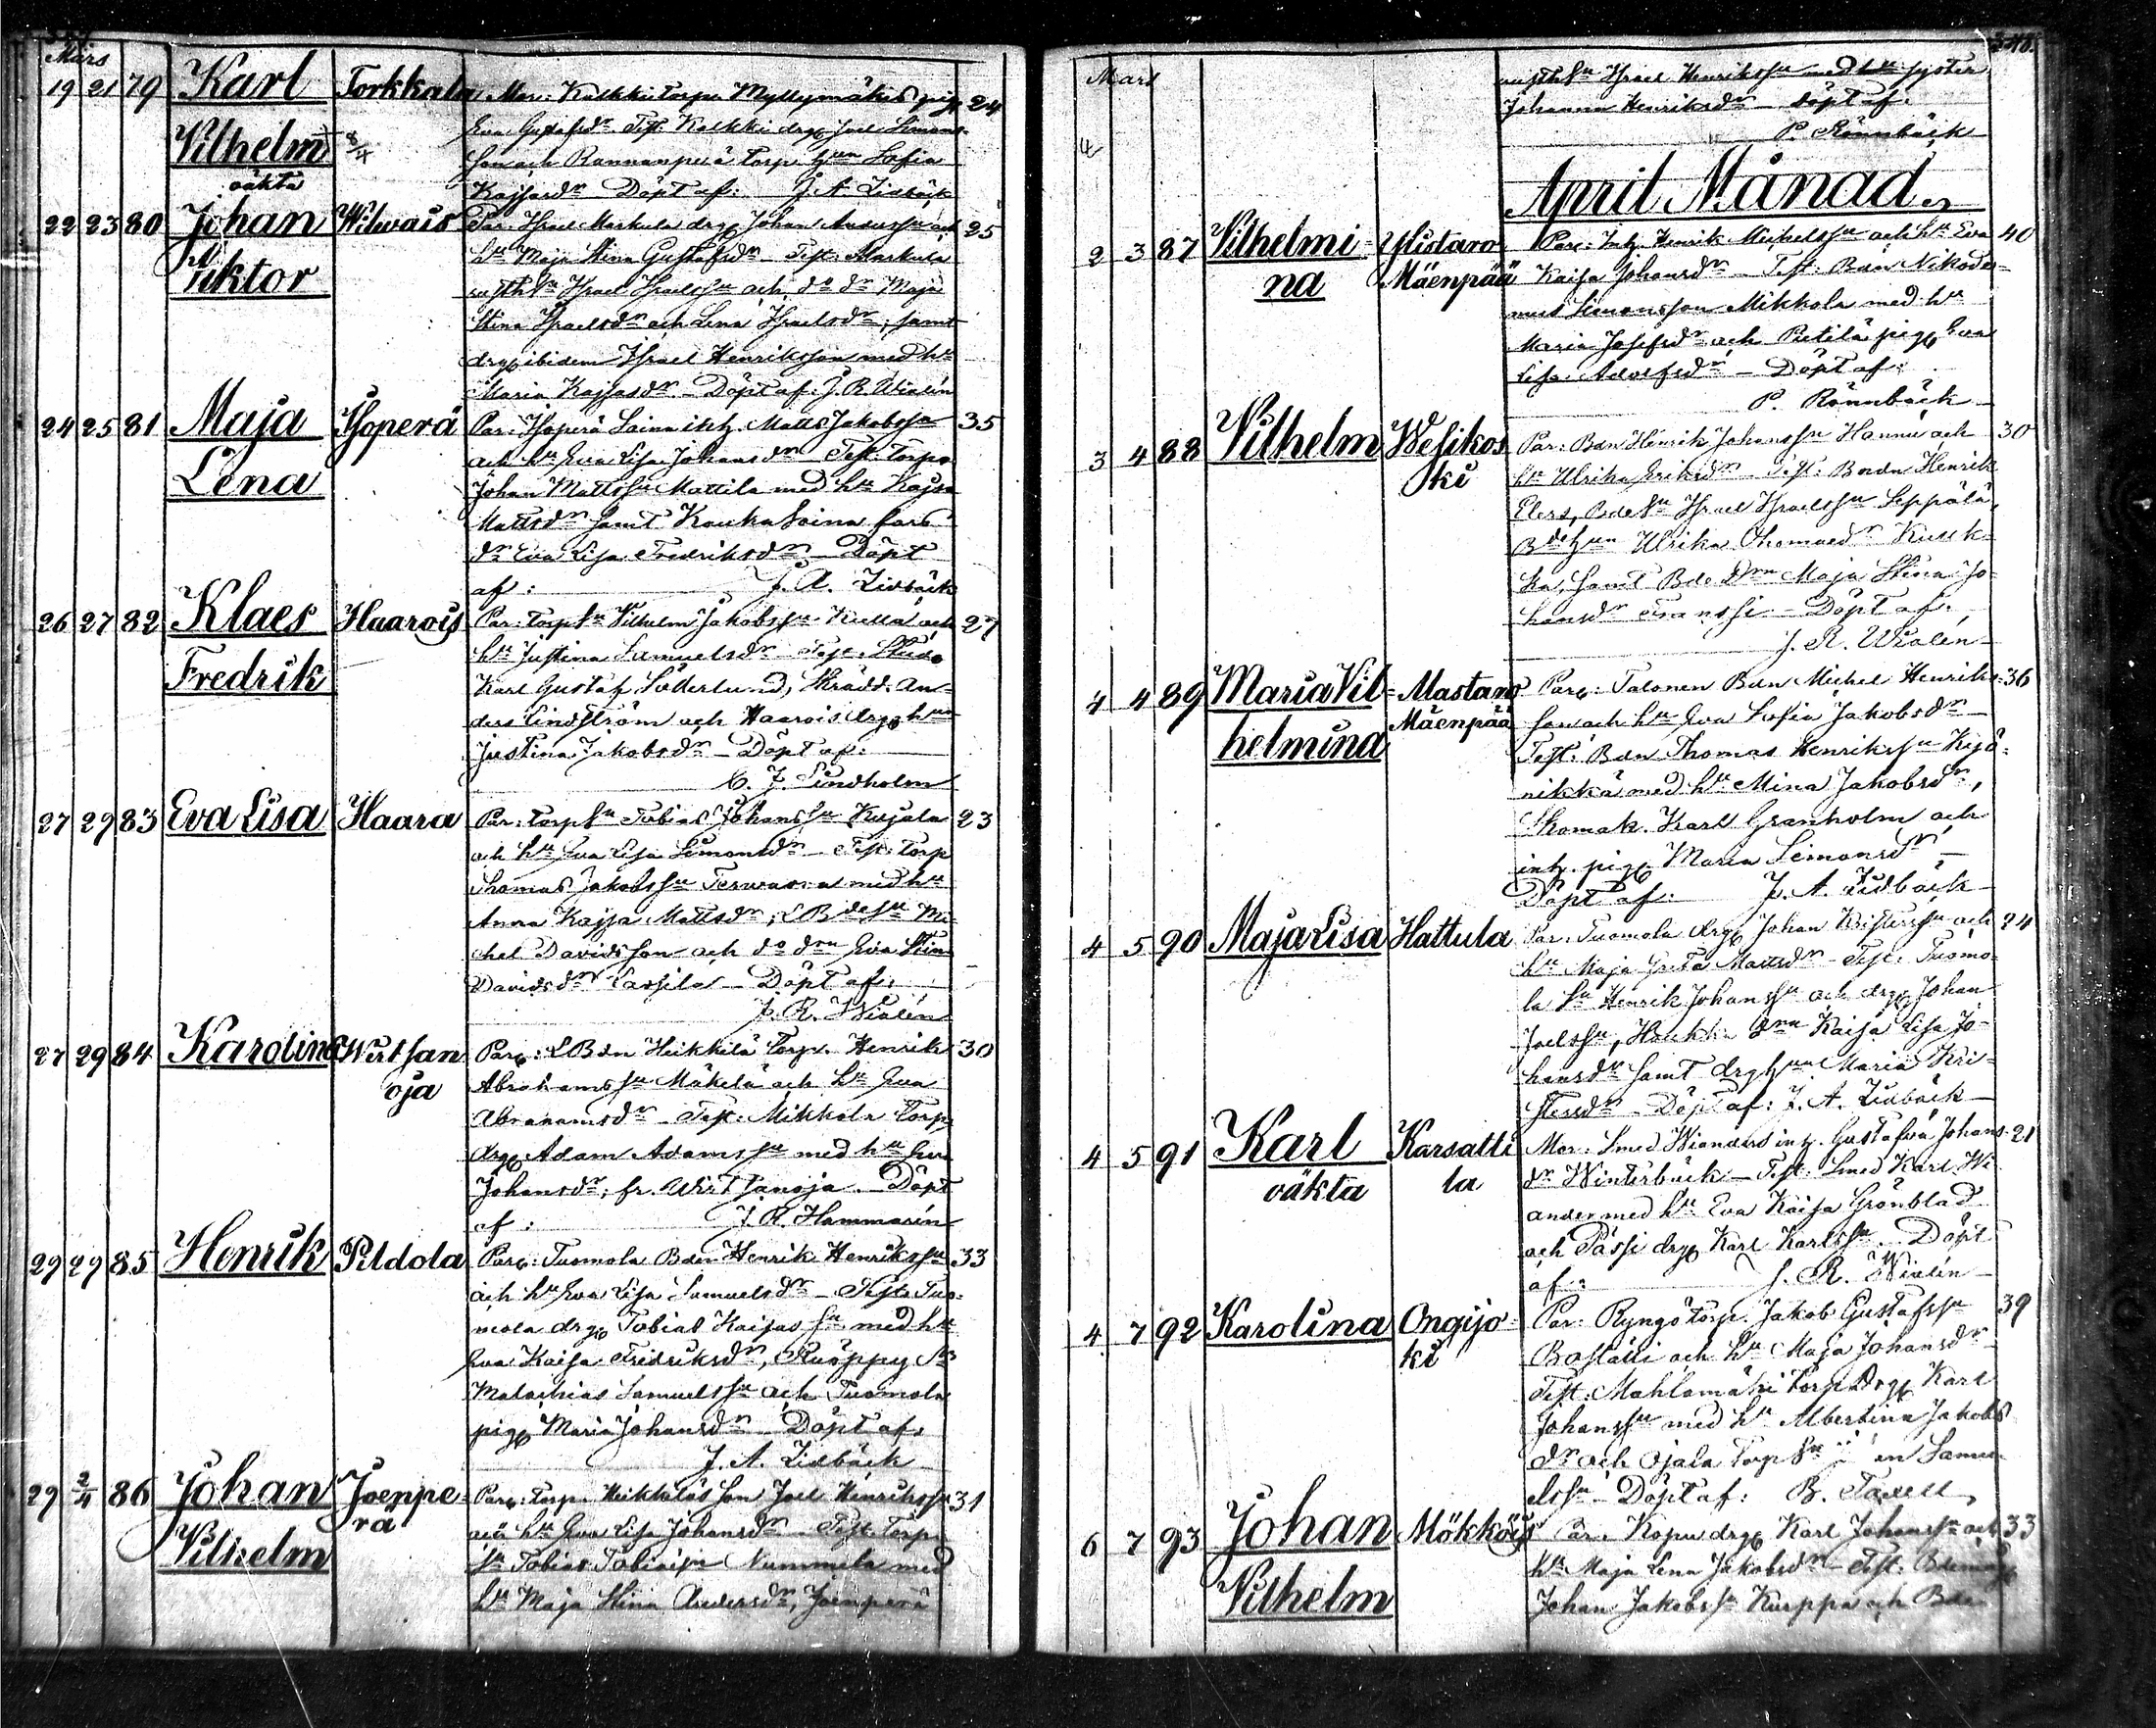 Mars
19 21 79 Karl Torkkala Mor: Kalkki torp. Myllymäkis pig. 24
Vilhelm 8/4 Eva Gustafsdr Test. Kalkki drg. Joel Simons-
son och Rannanperä torp. hun Sofia
oäkta Kajsasdr Döpt af: J. A. Lidbäck
22 23 80 Johan Wilwais Par. Israel Markula drg. Johan Anderssn och 25
Viktor hu Maja Stina Gustafsdr Test. Markula
rusth Sn Israel Israelssn och do dr Maja
Stina Israelsdr och Lena Israelsdr, samt
drg. ibidem Israel Henriksson med hu
Maria Kajsasdr Döpt af: J. R. Wialén
24 25 81 Maja Isoperä Par. Isoperä Laina inh. Matts Jakobssn 35
Lena och hu Eva Lisa Johansdr Test. torp.
Johan Mattssn Mattila med hu Kajsa
Mattsdr samt Kauha Laina fars
dr Eva Lisa Fredriksdr Döpt
af: J. A. Lidbäck
26 27 82 Klaes Haarois Par. torp Sn Vilhelm Jakobssn Kulla och 27
Fredrik hu Justina Samuelsdr Test. Stud.
Karl Gustaf Söderlund, Skrädd. An-
ders Lindström och Haarois drg. hun
Justina Jakobsdr Döpt af:
C. J. Lindholm
27 29 83 Eva Lisa Haara Par: torp Sn Tobias Johanssn Kujala 23
och hu Eva Lisa Simonsdr Test. torp
Thomas Jakobssn Terwasna med hu
Anna Kajsa Mattsdr; LBde Sn Mi-
chel Davidsson och do drn Eva Stin
Davidsdr Lassila Döpt af:
J. R. Wialén
27 29 84 Karolina Wirtsan Par: LBdn Heikkilä torp. Henrik 30
oja Abrahamssn Mäkelä och hu Eva
Abrahamsdr Test. Mikkola torp.
drg. Adam Adamssn med hu Eva
Johansdr, fr. Wirtsanoja Döpt
af: J. R. Hammarén
29 29 85 Henrik Peldola Par: Tuomola Bdn Henrik Henrikssn 33
och hu Eva Lisa Samuelsdr Test. Tuo-
mola drg. Tobias Kaisas Sn med hu
Eva Kaisa Fredriksdr, Ruoppy Sn
Malachias Samuelssn och Tuomola
pig. Maria Johansdr Döpt af:
J. A. Lidbäck
29 2/4 86 Johan Joenpe- Par: torp. Heikkiläs son Joel Henrikssn 31
rä och hu Eva Lisa Johansdr Test. torp.
Vilhelm Sn Tobias Tobiassn Nummela med
hu Maja Stina Andersdr, Joenperä
348.
Mars rusth Sn Israel Henrikssn med syster
Johanna Henriksdr döpt af:
P. Rönnbäck
April Månad.
2 3 87 Vilhelmi- Ylistaro Par: Inh. Henrik Michelssn och hu Eva 40
na Mäenpää Kaisa Johansdr Test: Bdn Nikode-
mus Simonsson Mikkola med hu
Maria Josefsdr och Pietilä pig. Eva
Lisa Adolfsdr Döpt af:
P. Rönnbäck
3 4 88 Vilhelm Wesikos Par: Bdn Henrik Johanssn Hannu och 30
ki hu Ulrika Eriksdr Test: Bndn Henrik
Elers, Bde Sn Israel Israelssn Seppälä,
Bde hun Ulrika Thomasdr Kusek-
ka, samt Bde drn Maja Stina Jo-
hansdr Franssi Döpt af:
J. R. Wialén
4 4 89 Maria Vil- Mastaro Par: Talonen Bdn Michel Henriks- 36
helmina Mäenpää son och hu Eva Sofia Jakobsdr
Test: Bdn Thomas Henrikssn Kejö-
nikkä med hu Mina Jakobsdr,
Skomak. Karl Granholm och
inh. pig. Maria Simonsdr
Döpt af: J. A. Lidbäck
4 5 90 Maja Lisa Hattula Par. Tuomola drg. Johan Kristerssn och 24
hu Maja Greta Mattsdr Test. Tuomo-
la Sn Henrik Johanssn och drg. Johan
Joelssn, drn Kaisa Lisa Jo-
hansdr samt drg. hun Maria Kri-
stersdr Döpt af: J. A. Lidbäck
4 5 91 Karl Karsatti Mor. Smed Wianders inh. Gustafva Johans- 21
oäkta la dr Winterbäck Test: Smed Karl Wi-
ander med hu Eva Kaisa Grönblad
och Passi drg. Karl Karlssn. Döpt
af: J. R. Wialén
4 7 92 Karolina Ongijo- Par: Ryngö torp. Jakob Gustafssn 39
ki Bastatti och hu Maja Johansdr
Test: Mahlamäki torp. drg. Karl
Johanssn med hu Albertina Jakobs
dr och Ojala torp Sn Samu-
elssn Döpt af: B. Taxell
6 7 93 Johan Mökköis Par. Kopu drg. Karl Johanssn och 33
Vilhelm hu Maja Lena Jakobsdr Test.
Johan Jakobssn Kurppa och Bdn